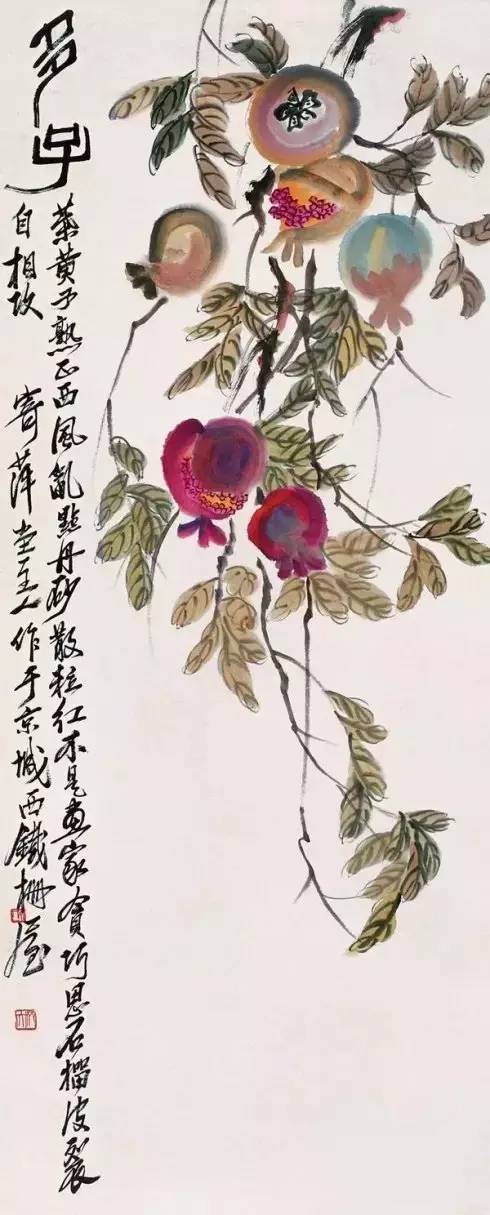 多子
葉黃子熟正西風亂點丹砂散粒紅不是畫家巧思石榴皮裂
自相攻
寄萍堂主人作于京城西鐵柵屋